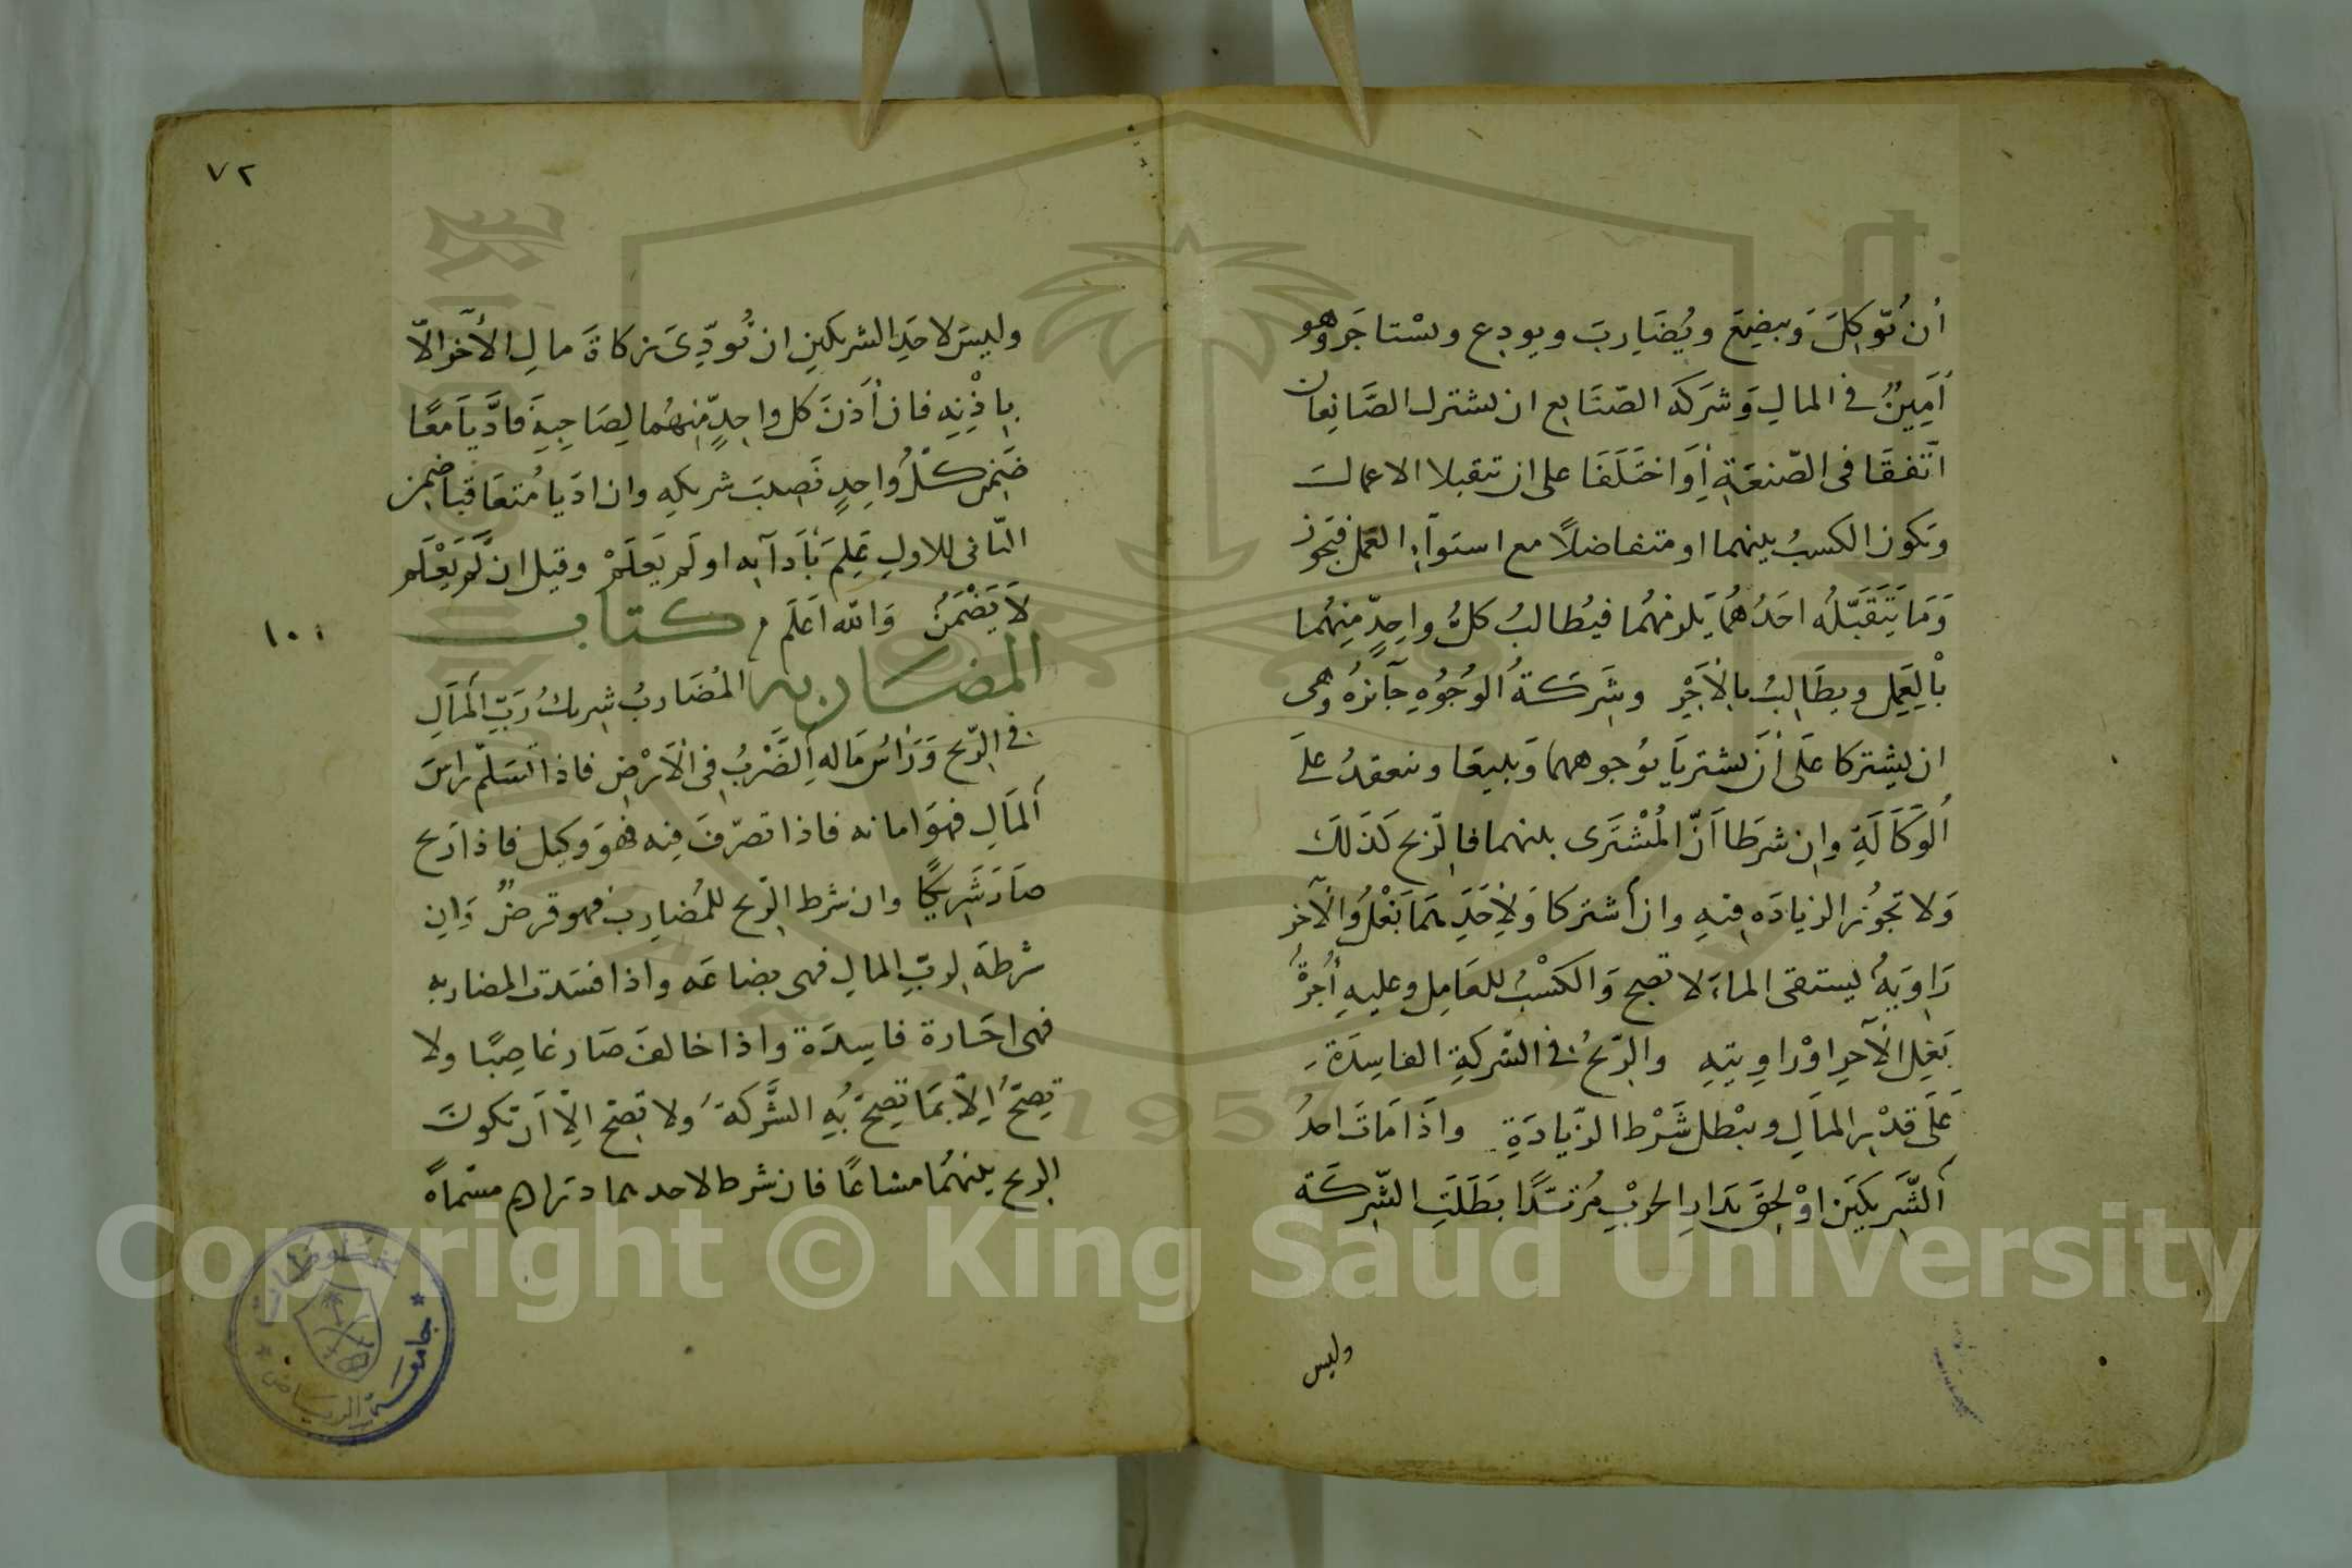 أن يُوَكِلَ وَيبضِعَ ويُضَارِبَ ويودع ويسْتاجَر وهو
أمِينٌ في المالِ وَشركة الصّنَايع ان يشترك الصَّانِعان
اتّفقَا في الصّنعَةِ أوَاختَلَفَا على ان يتقبلا الاعمال
وَيكون الكسبُ بينهما او متفاضلاً مع استوآءِ العَمل فيَجوز
وَمَا يَتَقَبَّلُه احَدُهُمَا يَلزمهُما فيُطالبُ كلُّ واحِدٍ مِنهُما
بْالعَمِل ويطَالِبُ بالأجْرِ وشَرَكةُ الوُجُوُهِ جآئزهُ وهي
ان يشتركا عَلَى أن يشتريَا بوُجوههما وَيبيعَا وينعقدُ علَى
اُلوَكَالَةِ وان شرطَا أنّ المُشْتَرى بينهما فالرّبح كَذَلكَ
وَلا تجوُز الزيادَه فِيهِ وان أشتركا وَلأحَدِهمَا بَغْلُ وَالآخر
رَاوِيَةُ ليستقى الماءَ لا تصح وَالكَسْبُ للعَامِل وعليهِ أُجرَةُ
بَغِل الآخرِ اوْ رَاوِيتِهِ والرّبحُ في الشركَةِ الفاسِدَة
عَلَى قدْرِ المالِ ويبْطل شَرْط الزّيادَةِ واذَا مَاتَ احدُ
اَلشَّرِيكَيْن اوْلحِقَ بدَارِ الحربْ مُرتدًّا بَطَلَتِ الشِركَة
وليس
٧٢
وليسَ لاحَدِ الشريكينِ ان يُودِّىَ زكاةَ مالِ الأخَر الّا
بإذْنِهِ فان أذنَ كل واحِدٍ مِنهُما لِصَاحِبِهِ فَادَّيا مَعًا
ضَمِنَ كُلُّ واحِدٍ نَصِيبَ شريكهِ وان ادّيا مُتعَاقبا ضمن
الثّانى للاولِ عَلِمَ بأدَآيه او لَم يَعلَمْ وقيل ان لَم يَعْلَم
لَا يَضْمَنُ وَالله اَعلَم كتاب
١٠٠
المضاربه المُضَاربُ شريكُ رَبِّ المَالِ
في الرّبح وَرَأسُ مَاله اِلضَّرْبُ فِى الأرْضِ فاذا تسَلّم رَاسَ
اَلمَالِ فهوَ امانه فاذا تصرّفَ فِيه فهوَ وكيل فاذا ربح
صَارَ شَرِيكًا وان شرط الرّبح للمُضارِب فهو قرضٌ وَان
شرطَه لربِّ المالِ فهى بضاعَه واذا فسَدت المضاربه
فهى اجَارة فاسِدَة واذا خالفَ صَار غاصِبًا ولا
تصِحّ اِلّا بمَا تصِحّ بهِ الشَّركة ولا تصَحّ الّا أن يكون
الربح بينهُما مشاعًا فان شرط لاحدهما دراهم مسّماةً
جامعة الرياض
مخطوطات
1957
Copyright © King Saud University